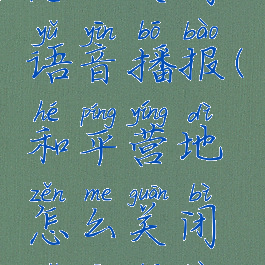 yǔ yīn bō bào
语音播报(
hé píng yíng dì
和平营地
zěn me guān bì
怎么关闭